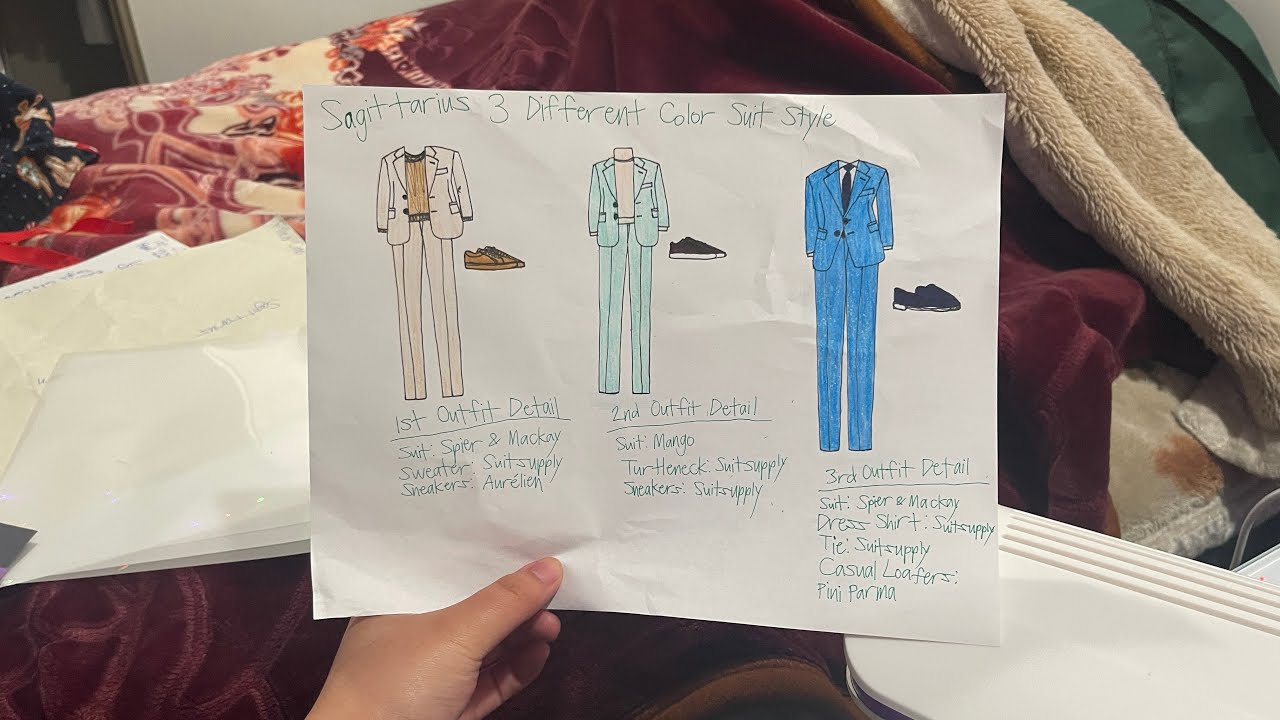 Sagittarius 3 Different Color Suit Style
1st Outfit Detail
Suit: Spier & Mackay
Sweater: Suitsupply
Sneakers: Aurélien
2nd Outfit Detail
Suit: Mango
Turtleneck: Suitsupply
Sneakers: Suitsupply
3rd Outfit Detail
Suit: Spier & Mackay
Dress Shirt: Suitsupply
Tie: Suitsupply
Casual Loafers:
Pini Parma